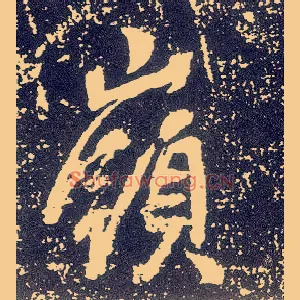 嶺
Shufawang.CN